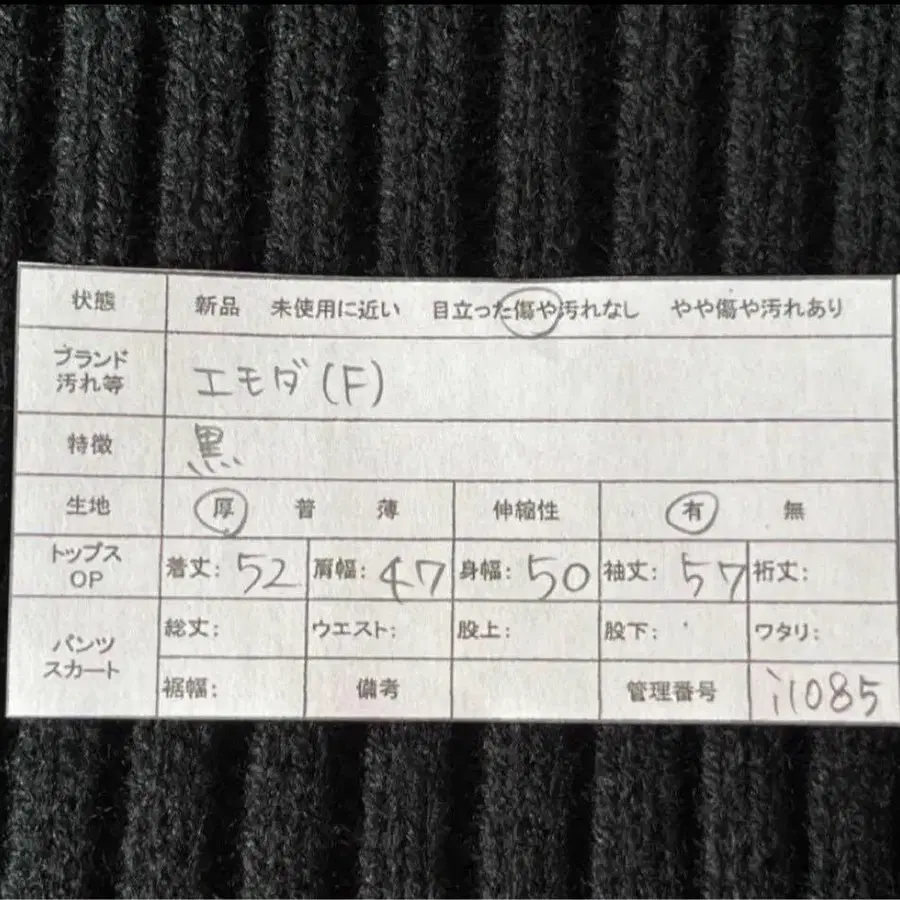 状態 新品 未使用に近い 目立った傷や汚れなし やや傷や汚れあり
ブランド
汚れ等 エモダ(F)
特徴 黒
生地 厚 普 薄 伸縮性 有 無
トップス
OP 着丈: 52 肩幅: 47 身幅: 50 袖丈: 57 裄丈:
パンツ
スカート 総丈: ウエスト: 股上: 股下: ワタリ:
裾幅: 備考 管理番号 i1085